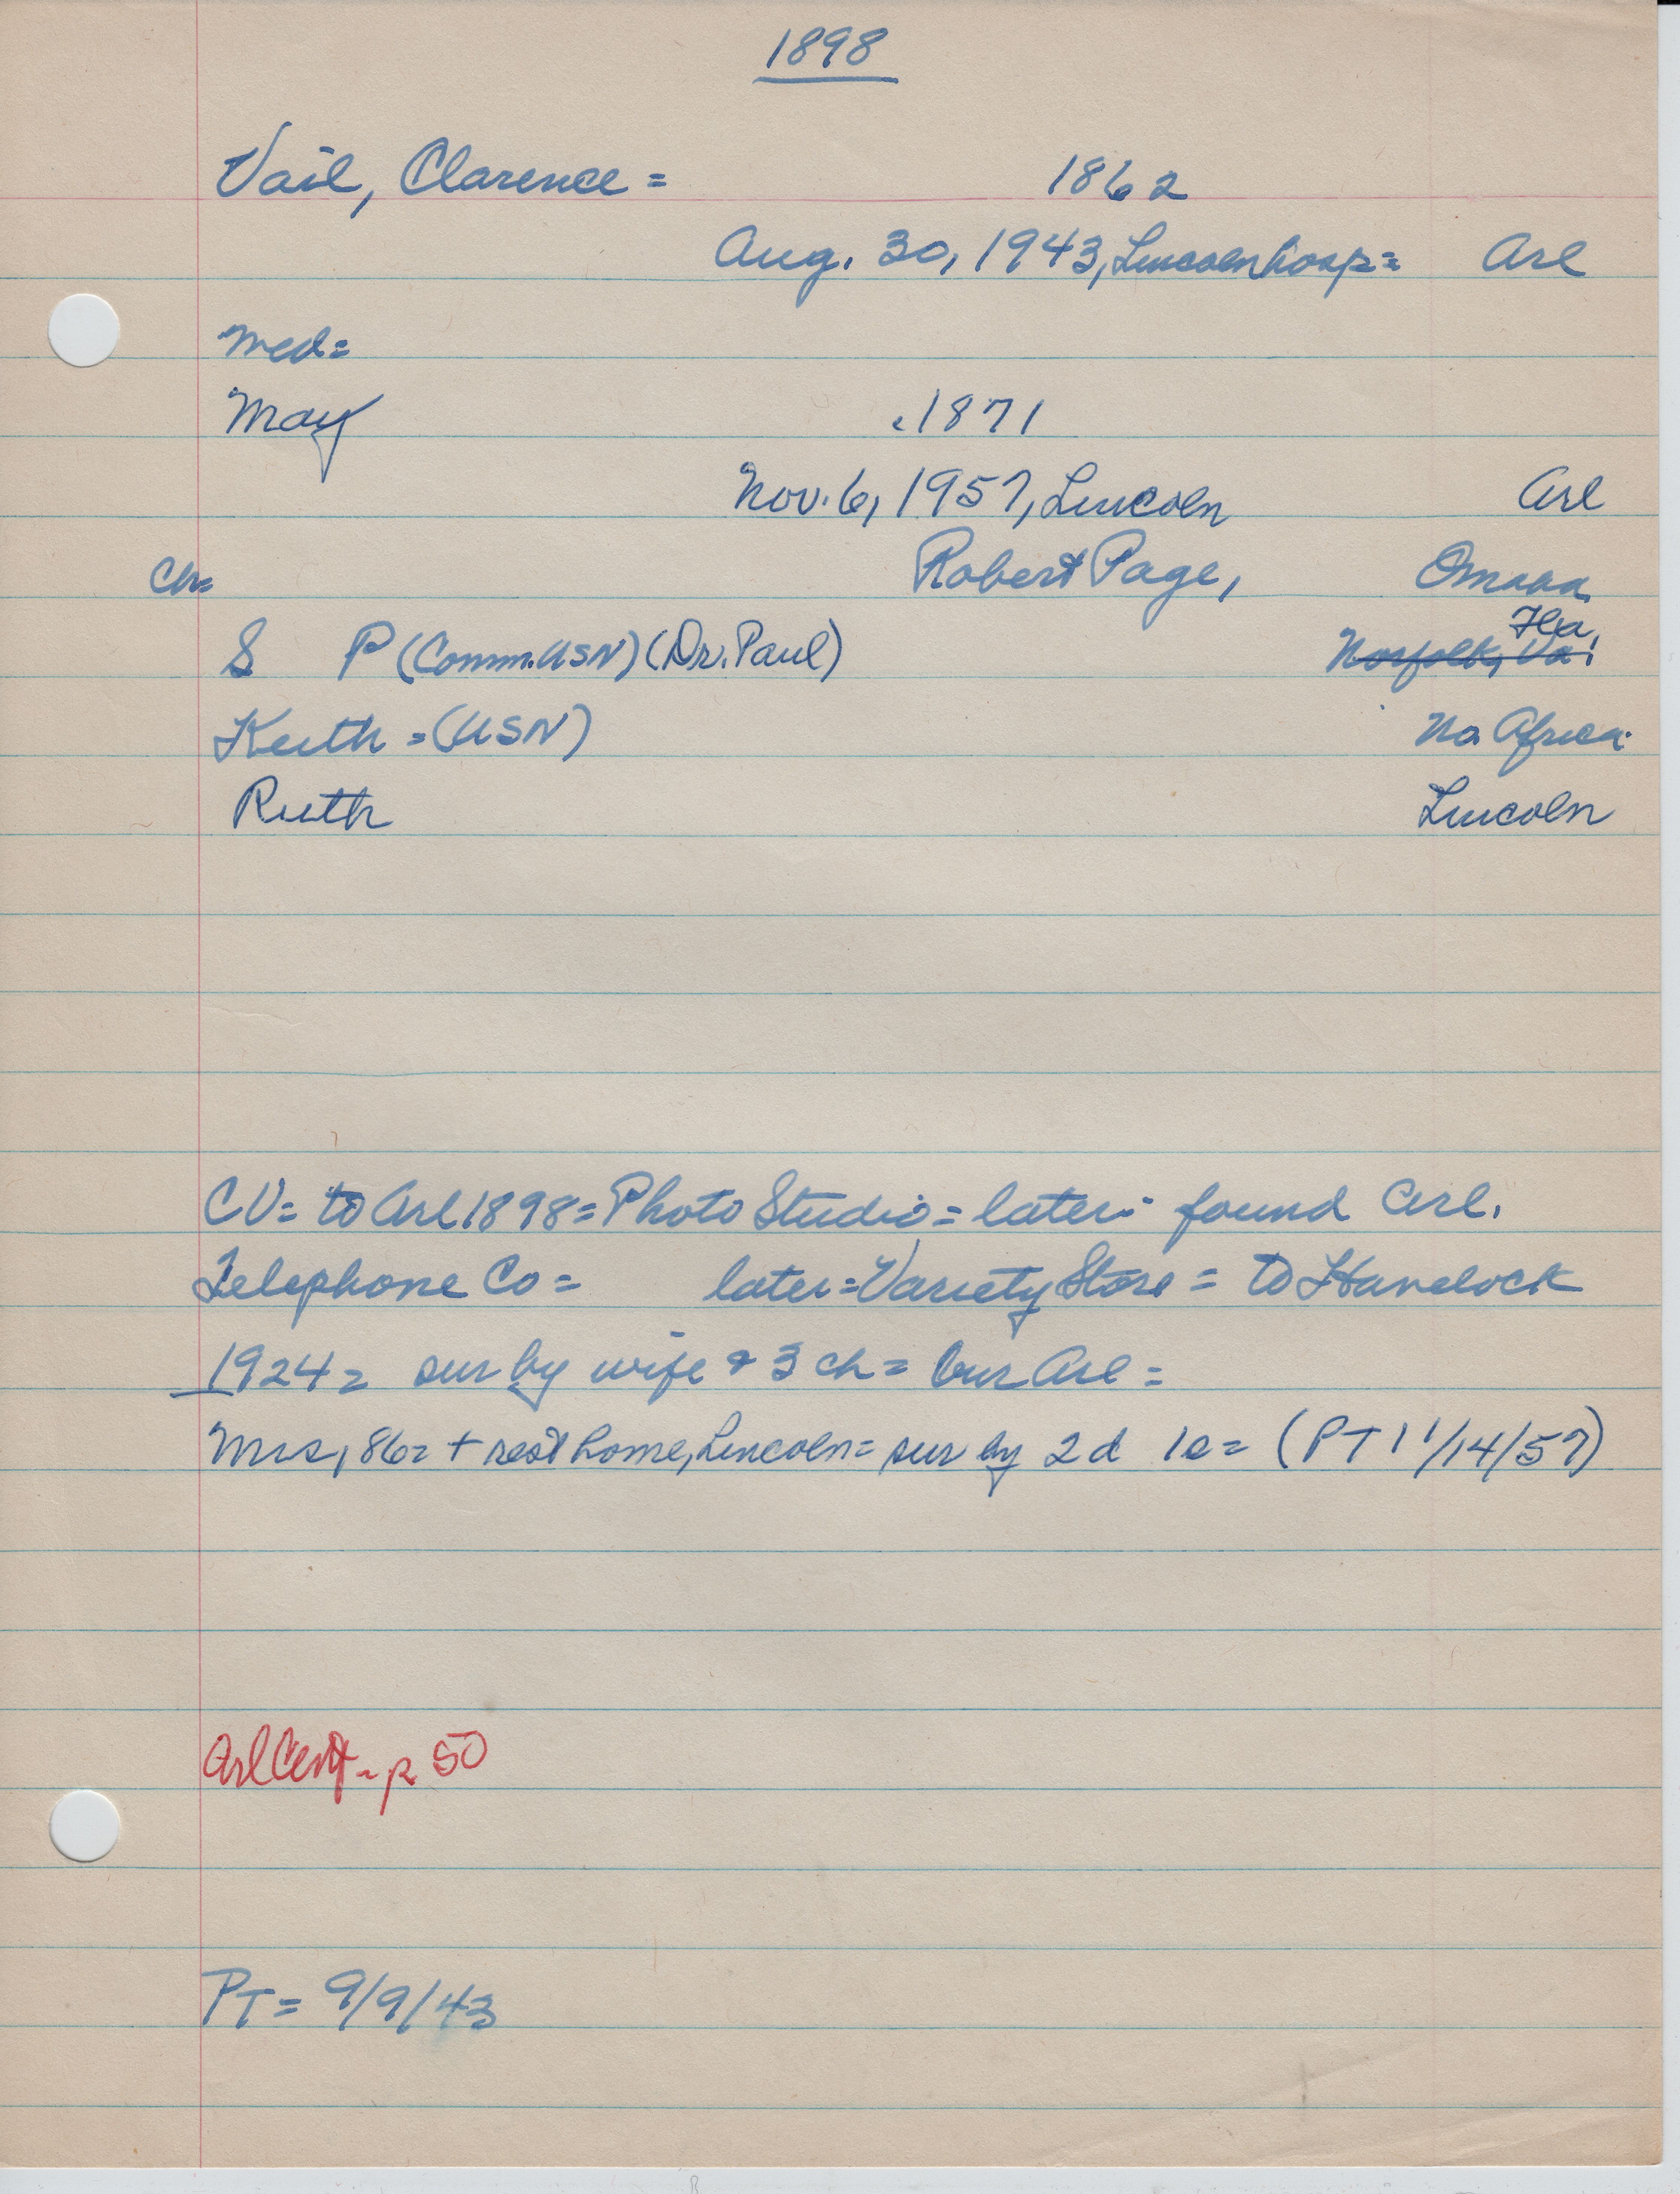 1898
Vail, Clarence = 1862
Aug. 30, 1943, Lincoln hosp = Arl
Med=
May c1871
Nov. 6, 1957, Lincoln Arl
Ch= Robert Page, Omaha
Fla.
S P (Comm. USN) (Dr. Paul) Norfolk, Va.
Keith = (USN) No. Africa
Ruth Lincoln
CV= to Arl 1898= Photo Studio = later = found Arl.
Telephone Co = later = Variety Store = to Havelock
1924= sur by wife & 3 ch = bur Arl =
Mrs, 86= + rest home, Lincoln = sur by 2d 1s = (PT 11/14/57)
Arl Cent - p 50
PT = 9/9/43